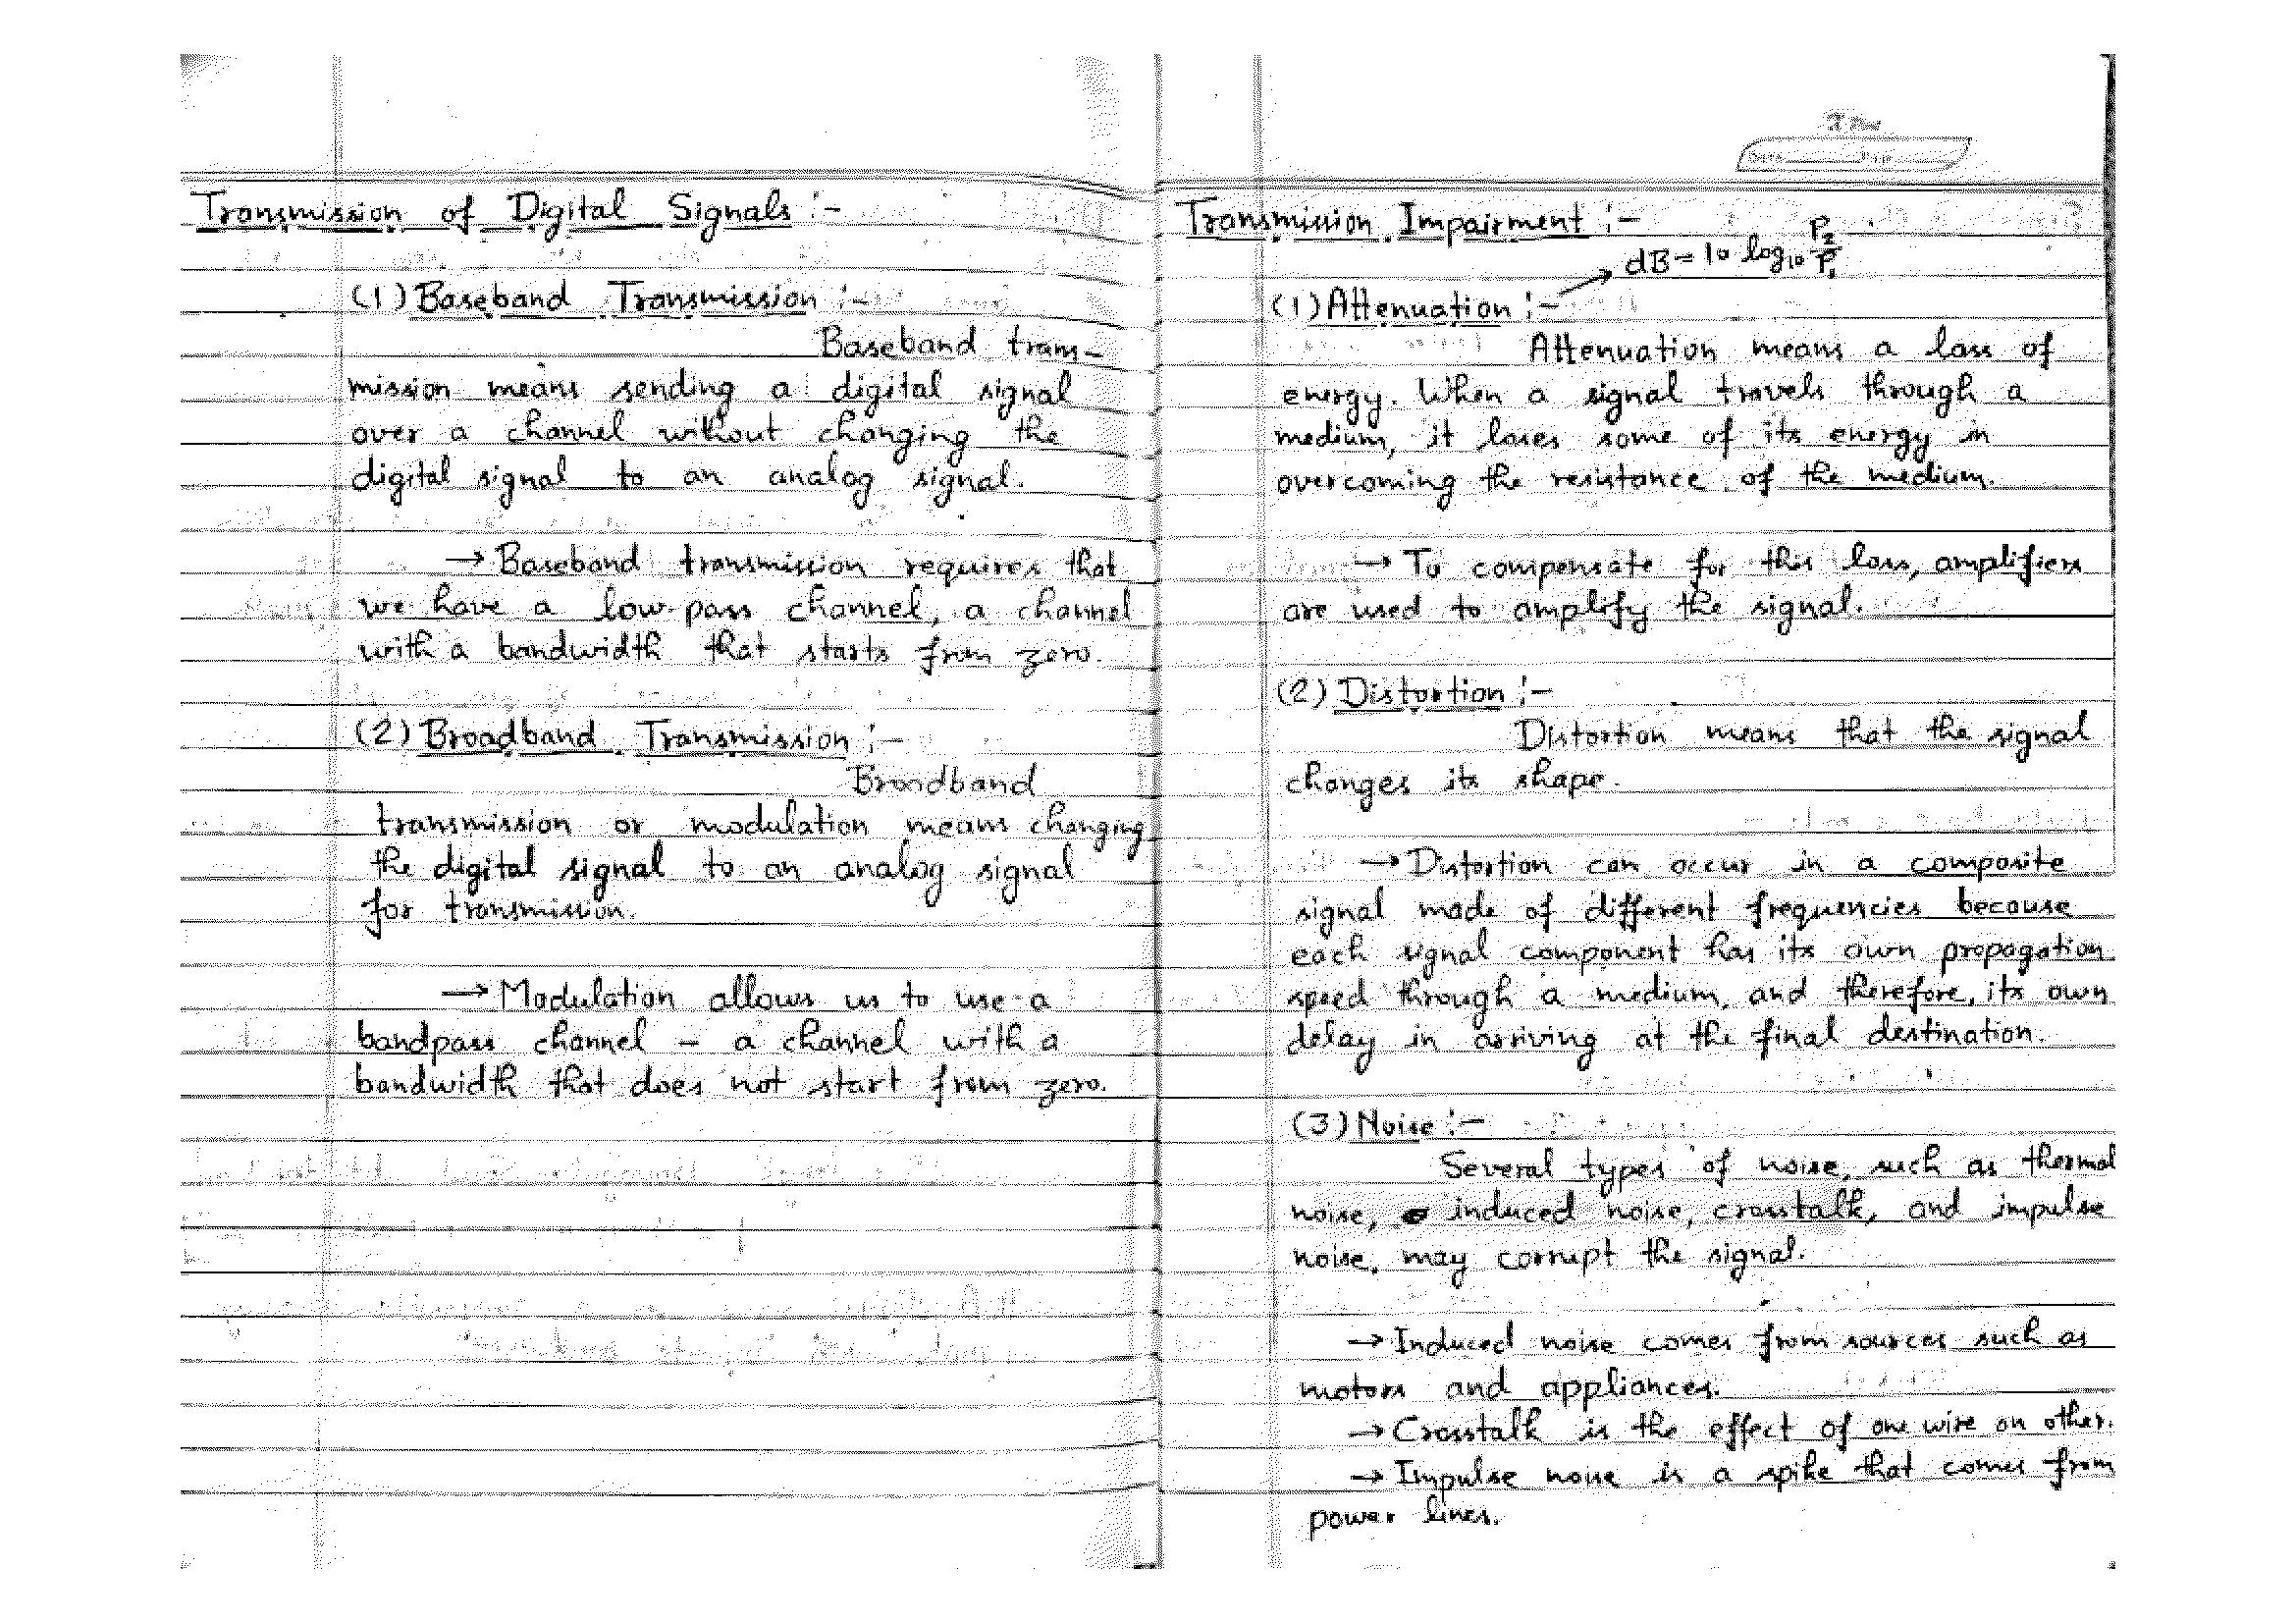 Transmission of Digital Signals :-
(1) Baseband Transmission :-
Baseband trans-
mission means sending a digital signal
over a channel without changing the
digital signal to an analog signal.
→ Baseband transmission requires that
we have a low-pass channel, a channel
with a bandwidth that starts from zero.
(2) Broadband Transmission :-
Broadband
transmission or modulation means changing
the digital signal to an analog signal
for transmission.
→ Modulation allows us to use a
bandpass channel - a channel with a
bandwidth that does not start from zero.
Transmission Impairment :-
dB = 10 log₁₀ P₂/P₁
(1) Attenuation :-
Attenuation means a loss of
energy. When a signal travels through a
medium, it loses some of its energy in
overcoming the resistance of the medium.
→ To compensate for this loss, amplifiers
are used to amplify the signal.
(2) Distortion :-
Distortion means that the signal
changes its shape.
→ Distortion can occur in a composite
signal made of different frequencies because
each signal component has its own propagation
speed through a medium, and therefore, its own
delay in arriving at the final destination.
(3) Noise :-
Several types of noise, such as thermal
noise, induced noise, crosstalk, and impulse
noise, may corrupt the signal.
→ Induced noise comes from sources such as
motors and appliances.
→ Crosstalk is the effect of one wire on other.
→ Impulse noise is a spike that comes from
power lines.